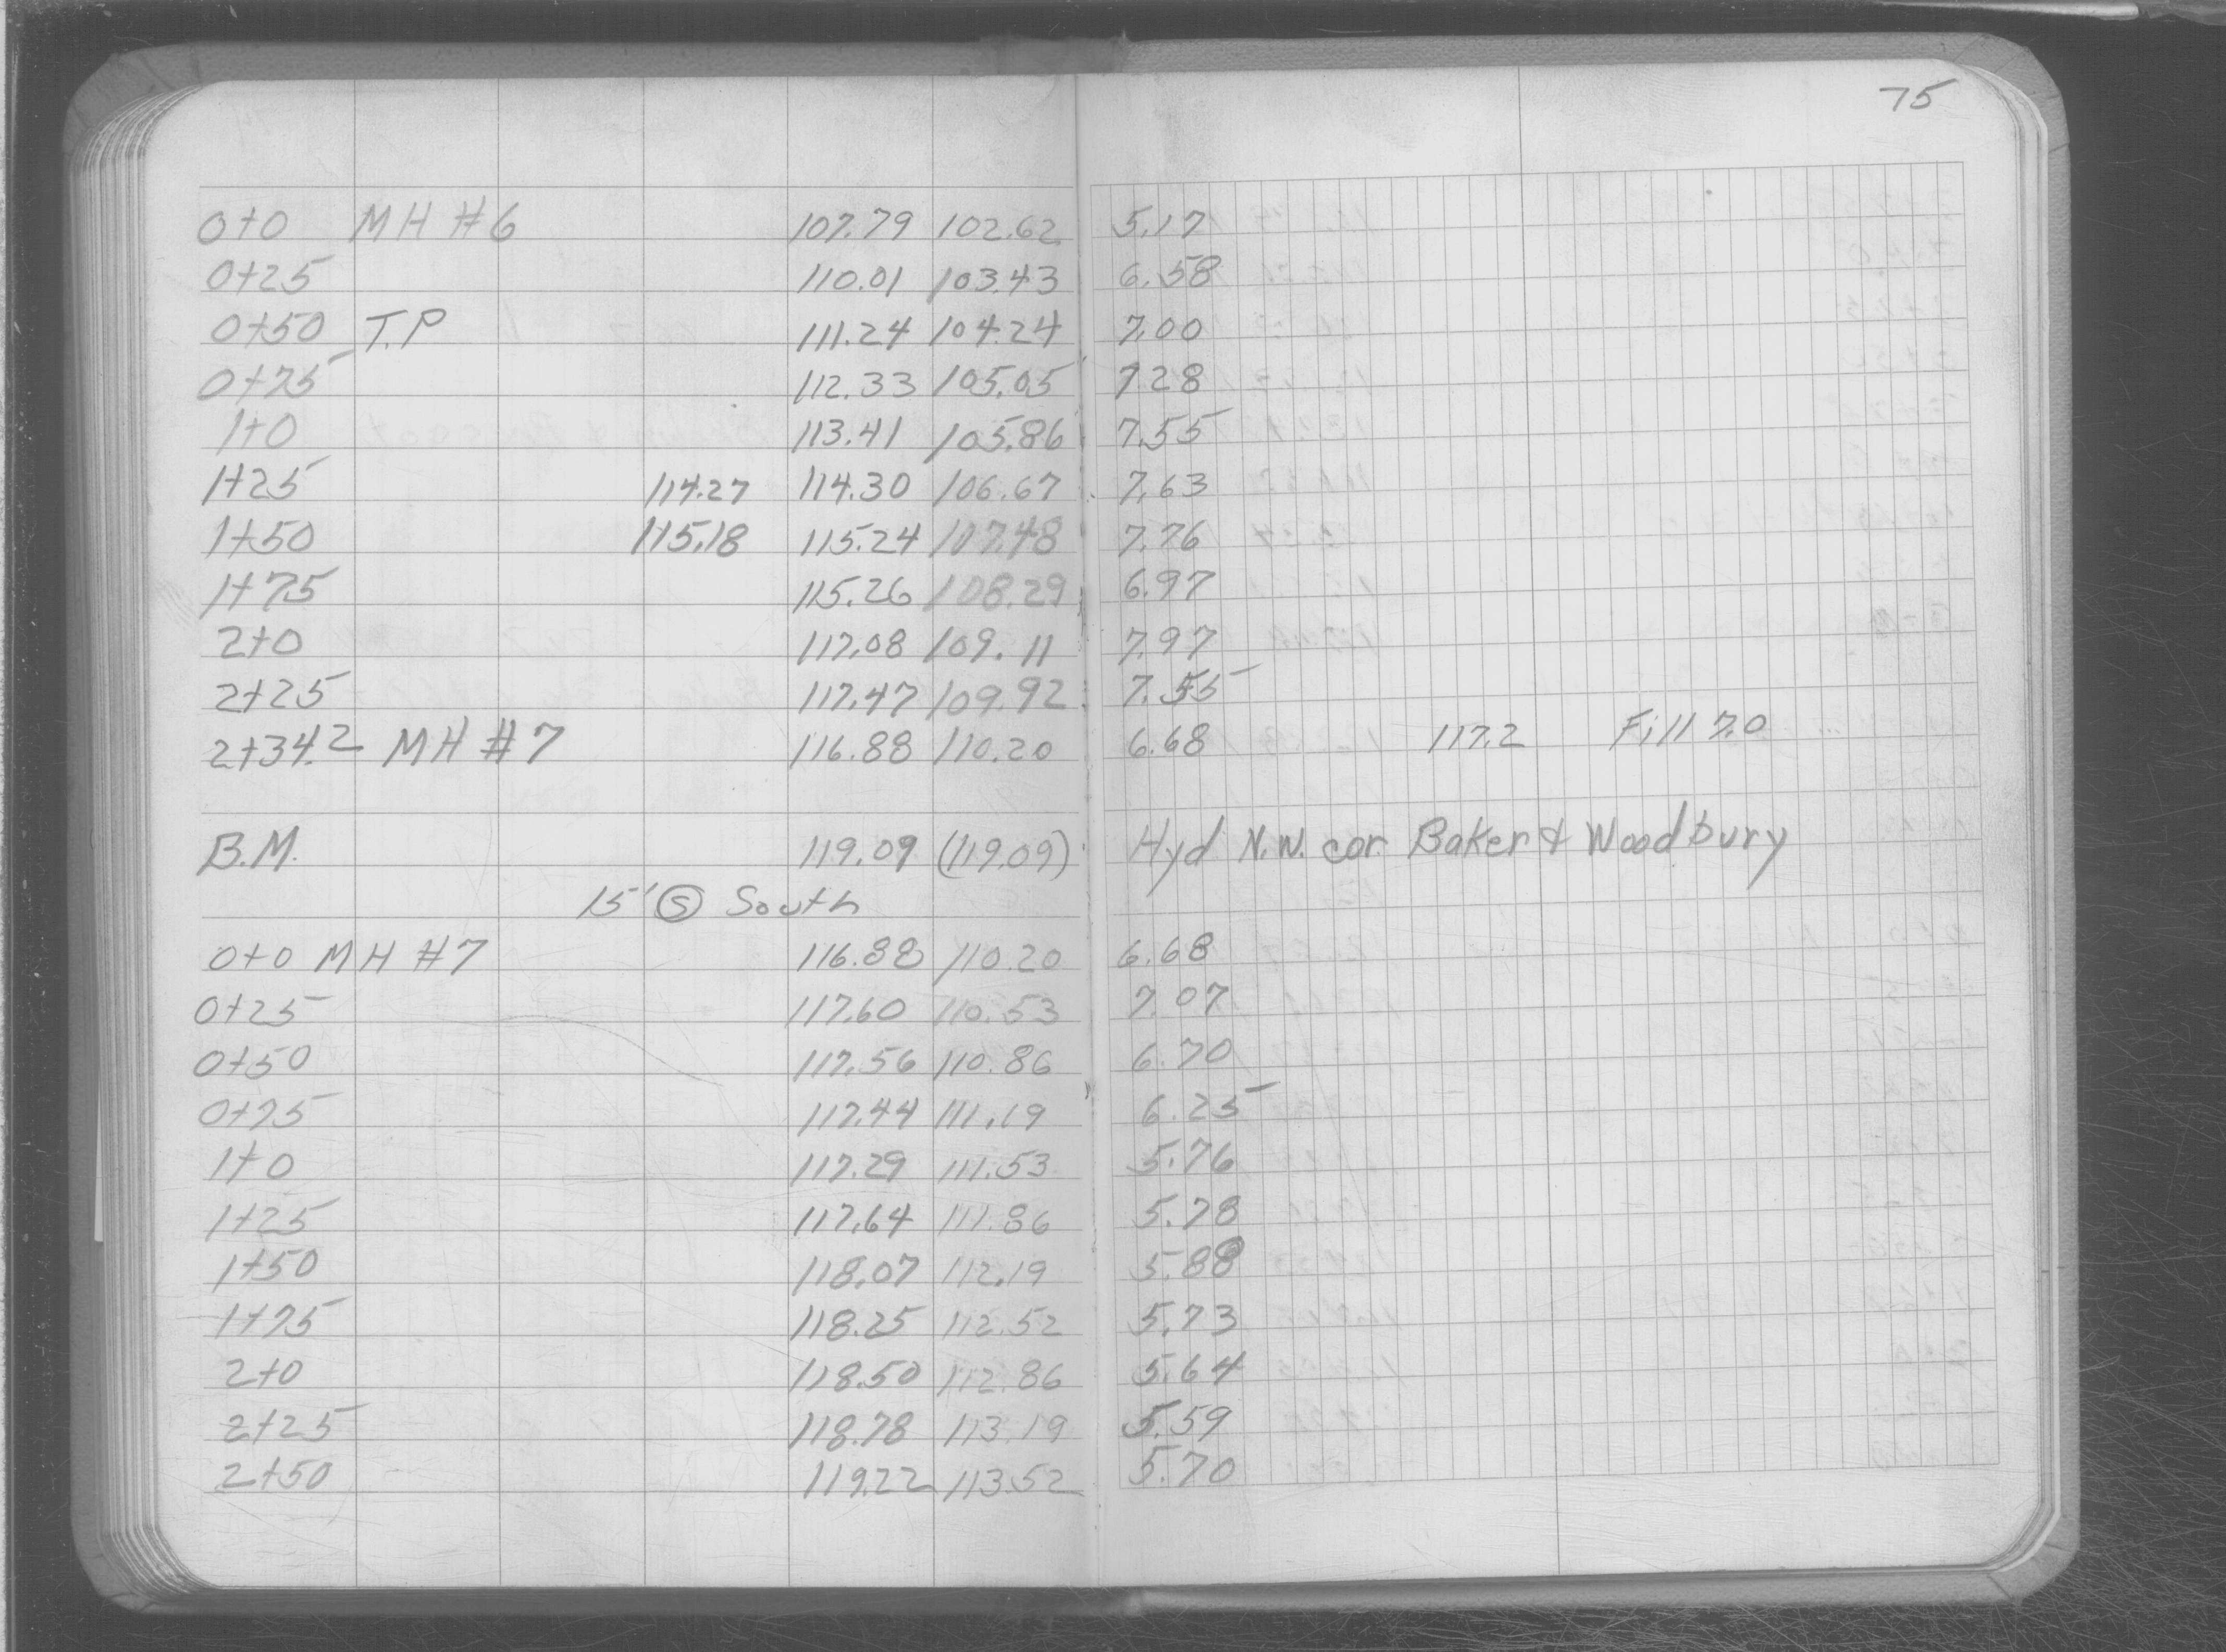 75
0+0 MH #6 107.79 102.62 5.17
0+25 110.01 103.43 6.58
0+50 T.P 111.24 104.24 7.00
0+75 112.33 105.05 7.28
1+0 113.41 105.86 7.55
1+25 114.27 114.30 106.67 7.63
1+50 115.18 115.24 107.48 7.76
1+75 115.26 108.29 6.97
2+0 117.08 109.11 7.97
2+25 117.47 109.92 7.55
2+34.2 MH #7 116.88 110.20 6.68 117.2 Fill 7.0
B.M. 119.09 (119.09) Hyd N.W. cor. Baker & Woodbury
15' Ⓢ South
0+0 MH #7 116.88 110.20 6.68
0+25 117.60 110.53 7.07
0+50 117.56 110.86 6.70
0+75 117.44 111.19 6.25
1+0 117.29 111.53 5.76
1+25 117.64 111.86 5.78
1+50 118.07 112.19 5.88
1+75 118.25 112.52 5.73
2+0 118.50 112.86 5.64
2+25 118.78 113.19 5.59
2+50 119.22 113.52 5.70